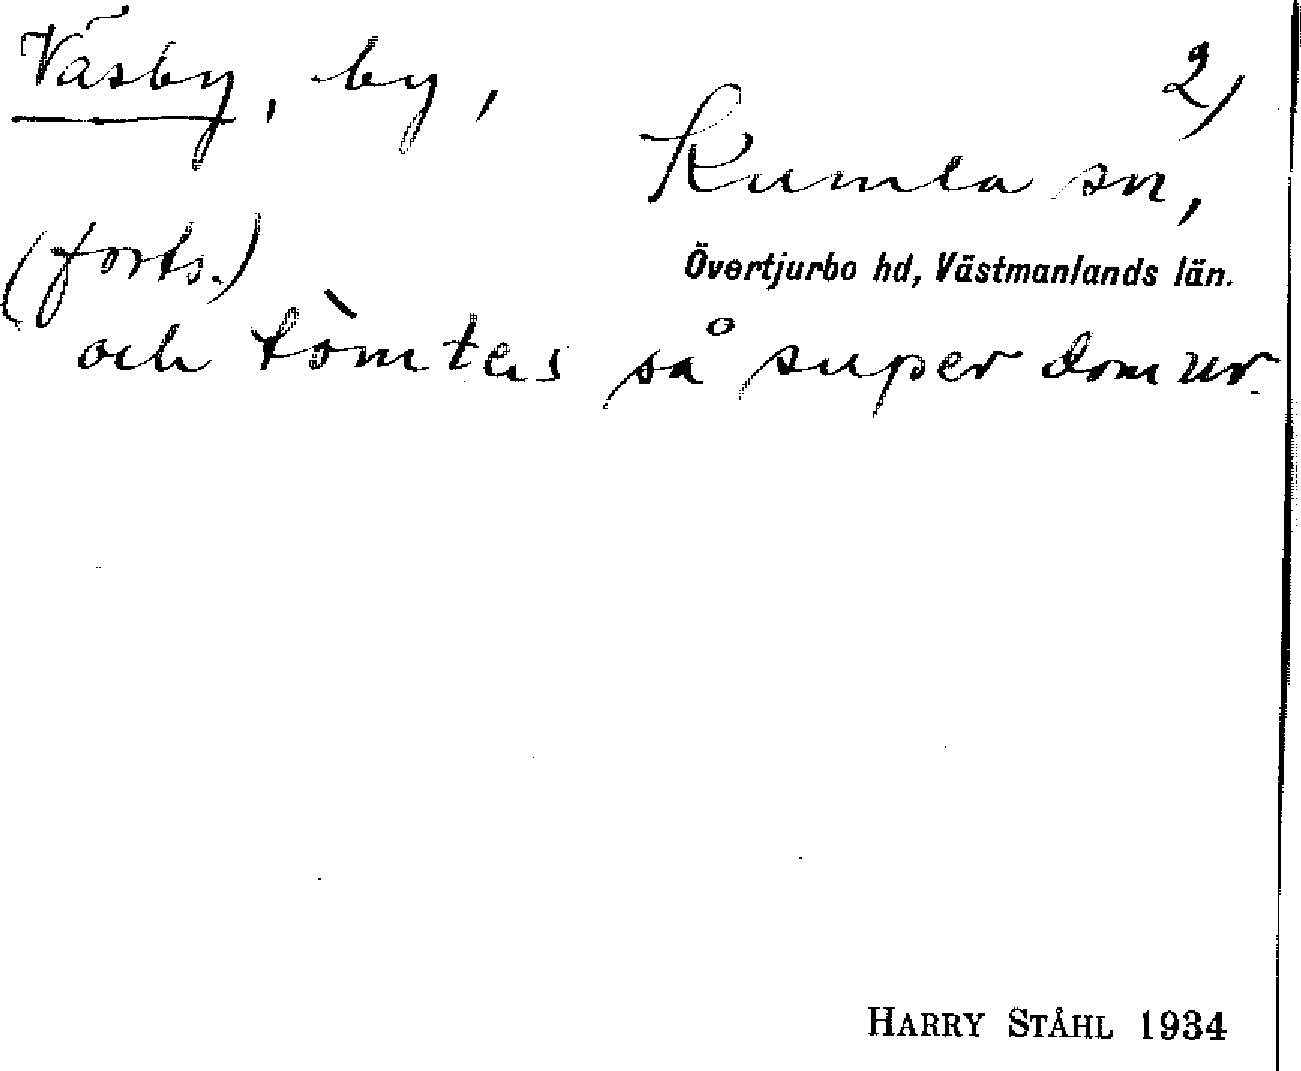 Väsby, by,
2)
Kumla sn,
(forts.)
Övertjurbo hd, Västmanlands län.
och tömtes så super dom ur.
HARRY STÅHL 1934